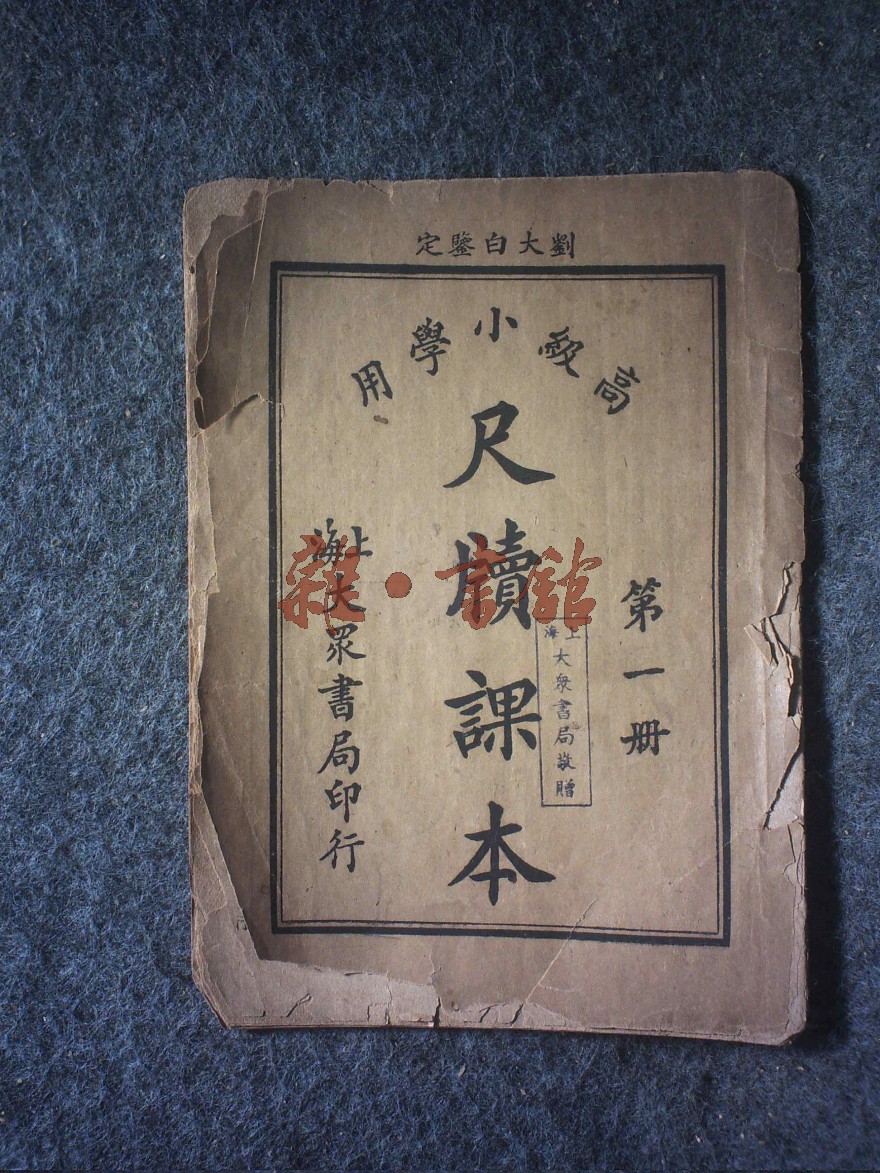 劉大白鑒定
高級小學用
第一册
尺牘課本
上海大眾書局印行
上海大衆書局敬贈
雜·書舘